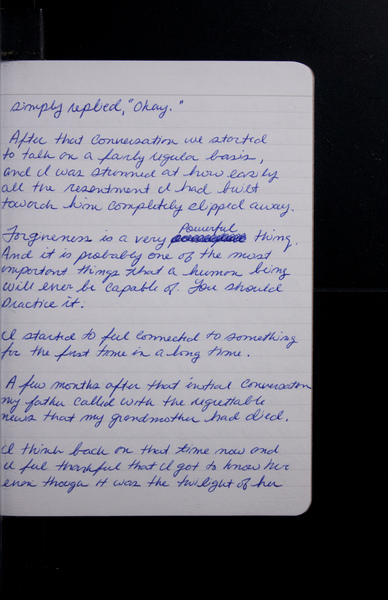 simply replied, "Okay."
After that conversation we started
to talk on a fairly regular basis,
and I was stunned at how easily
all the resentment I had built
towards him completely clipped away.
Forgiveness is a very powerful thing.
And it is probably one of the most
important things that a human being
will ever be capable of. You should
practice it.
I started to feel connected to something
for the first time in a long time.
A few months after that initial conversation
my father called with the regrettable
news that my grandmother had died.
I think back on that time now and
I feel thankful that I got to know her
even though it was the twilight of her